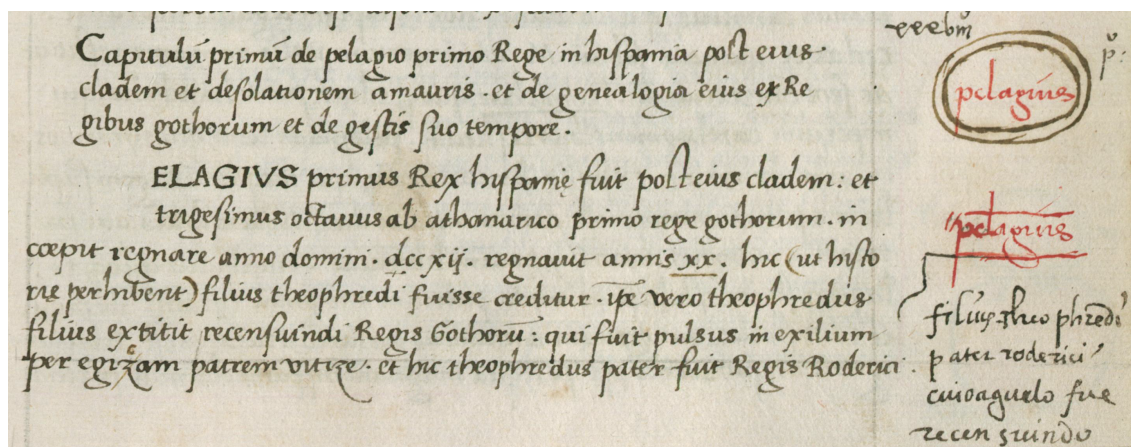 Capitulū primū de pelagio primo Rege in hispania post eius
cladem et desolationem a mauris · et de genealogia eius ex Re
gibus gothorum et de gestis suo tempore.
ELAGIVS primus Rex hispanię fuit post eius cladem: et
trigesimus octauus ab athanarico primo rege gothorum · in
cœpit regnare anno domini · dccxij · regnauit annis xx · hic (ut histo
rię perhibent) filius theophredi fuisse creditur · ip̄e vero theophredus
filius extitit recensuindi Regis Gothorū: qui fuit pulsus in exilium
per egizam patrem vitizę · et hic theophredus pater fuit Regis Roderici ·
pelagius
pelagius
filius theophredi
pater roderici
cuio aguelo fue
recensuindo